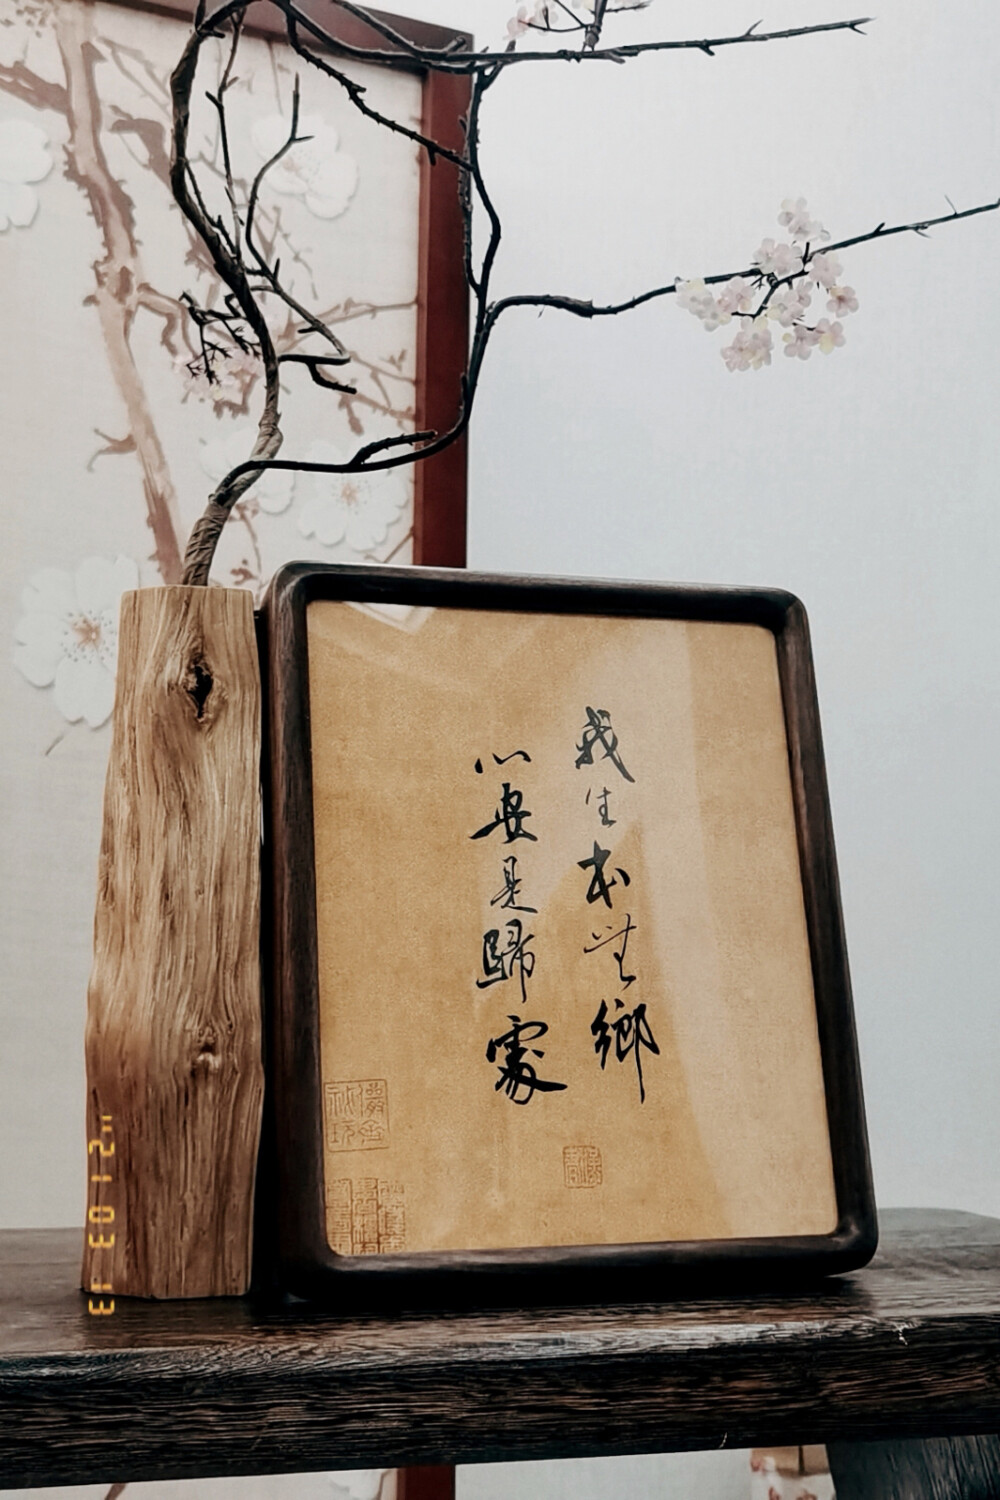 我生本無鄉
心安是歸處
'21 03 13